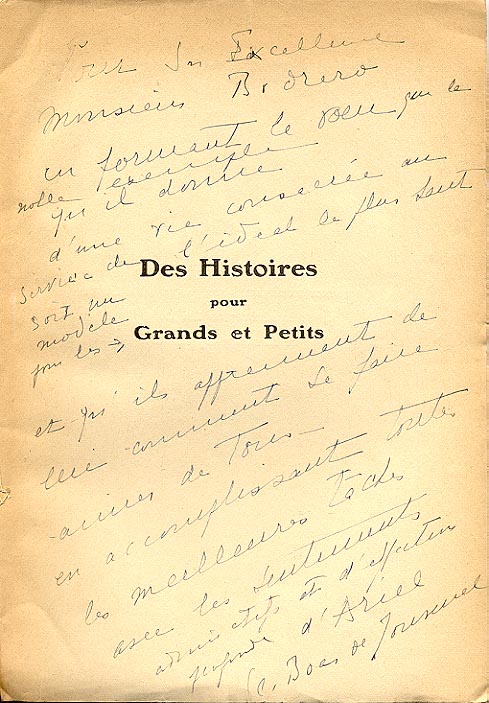 Pour Son Excellence
Monsieur Bodrero
en formant le voeu que le
noble exemple
qu'il donne
d'une vie consacrée au
service de l'idéal le plus haut
soit un
modèle
pour les →
Des Histoires
pour
Grands et Petits
et qu'ils apprennent de
lui comment se faire
aimer de Tous
en accomplissant toutes
les meilleures taches
avec les sentiments
admiratifs et d'affection
profonde d'Ariel
(C. Boas de Jouvenel